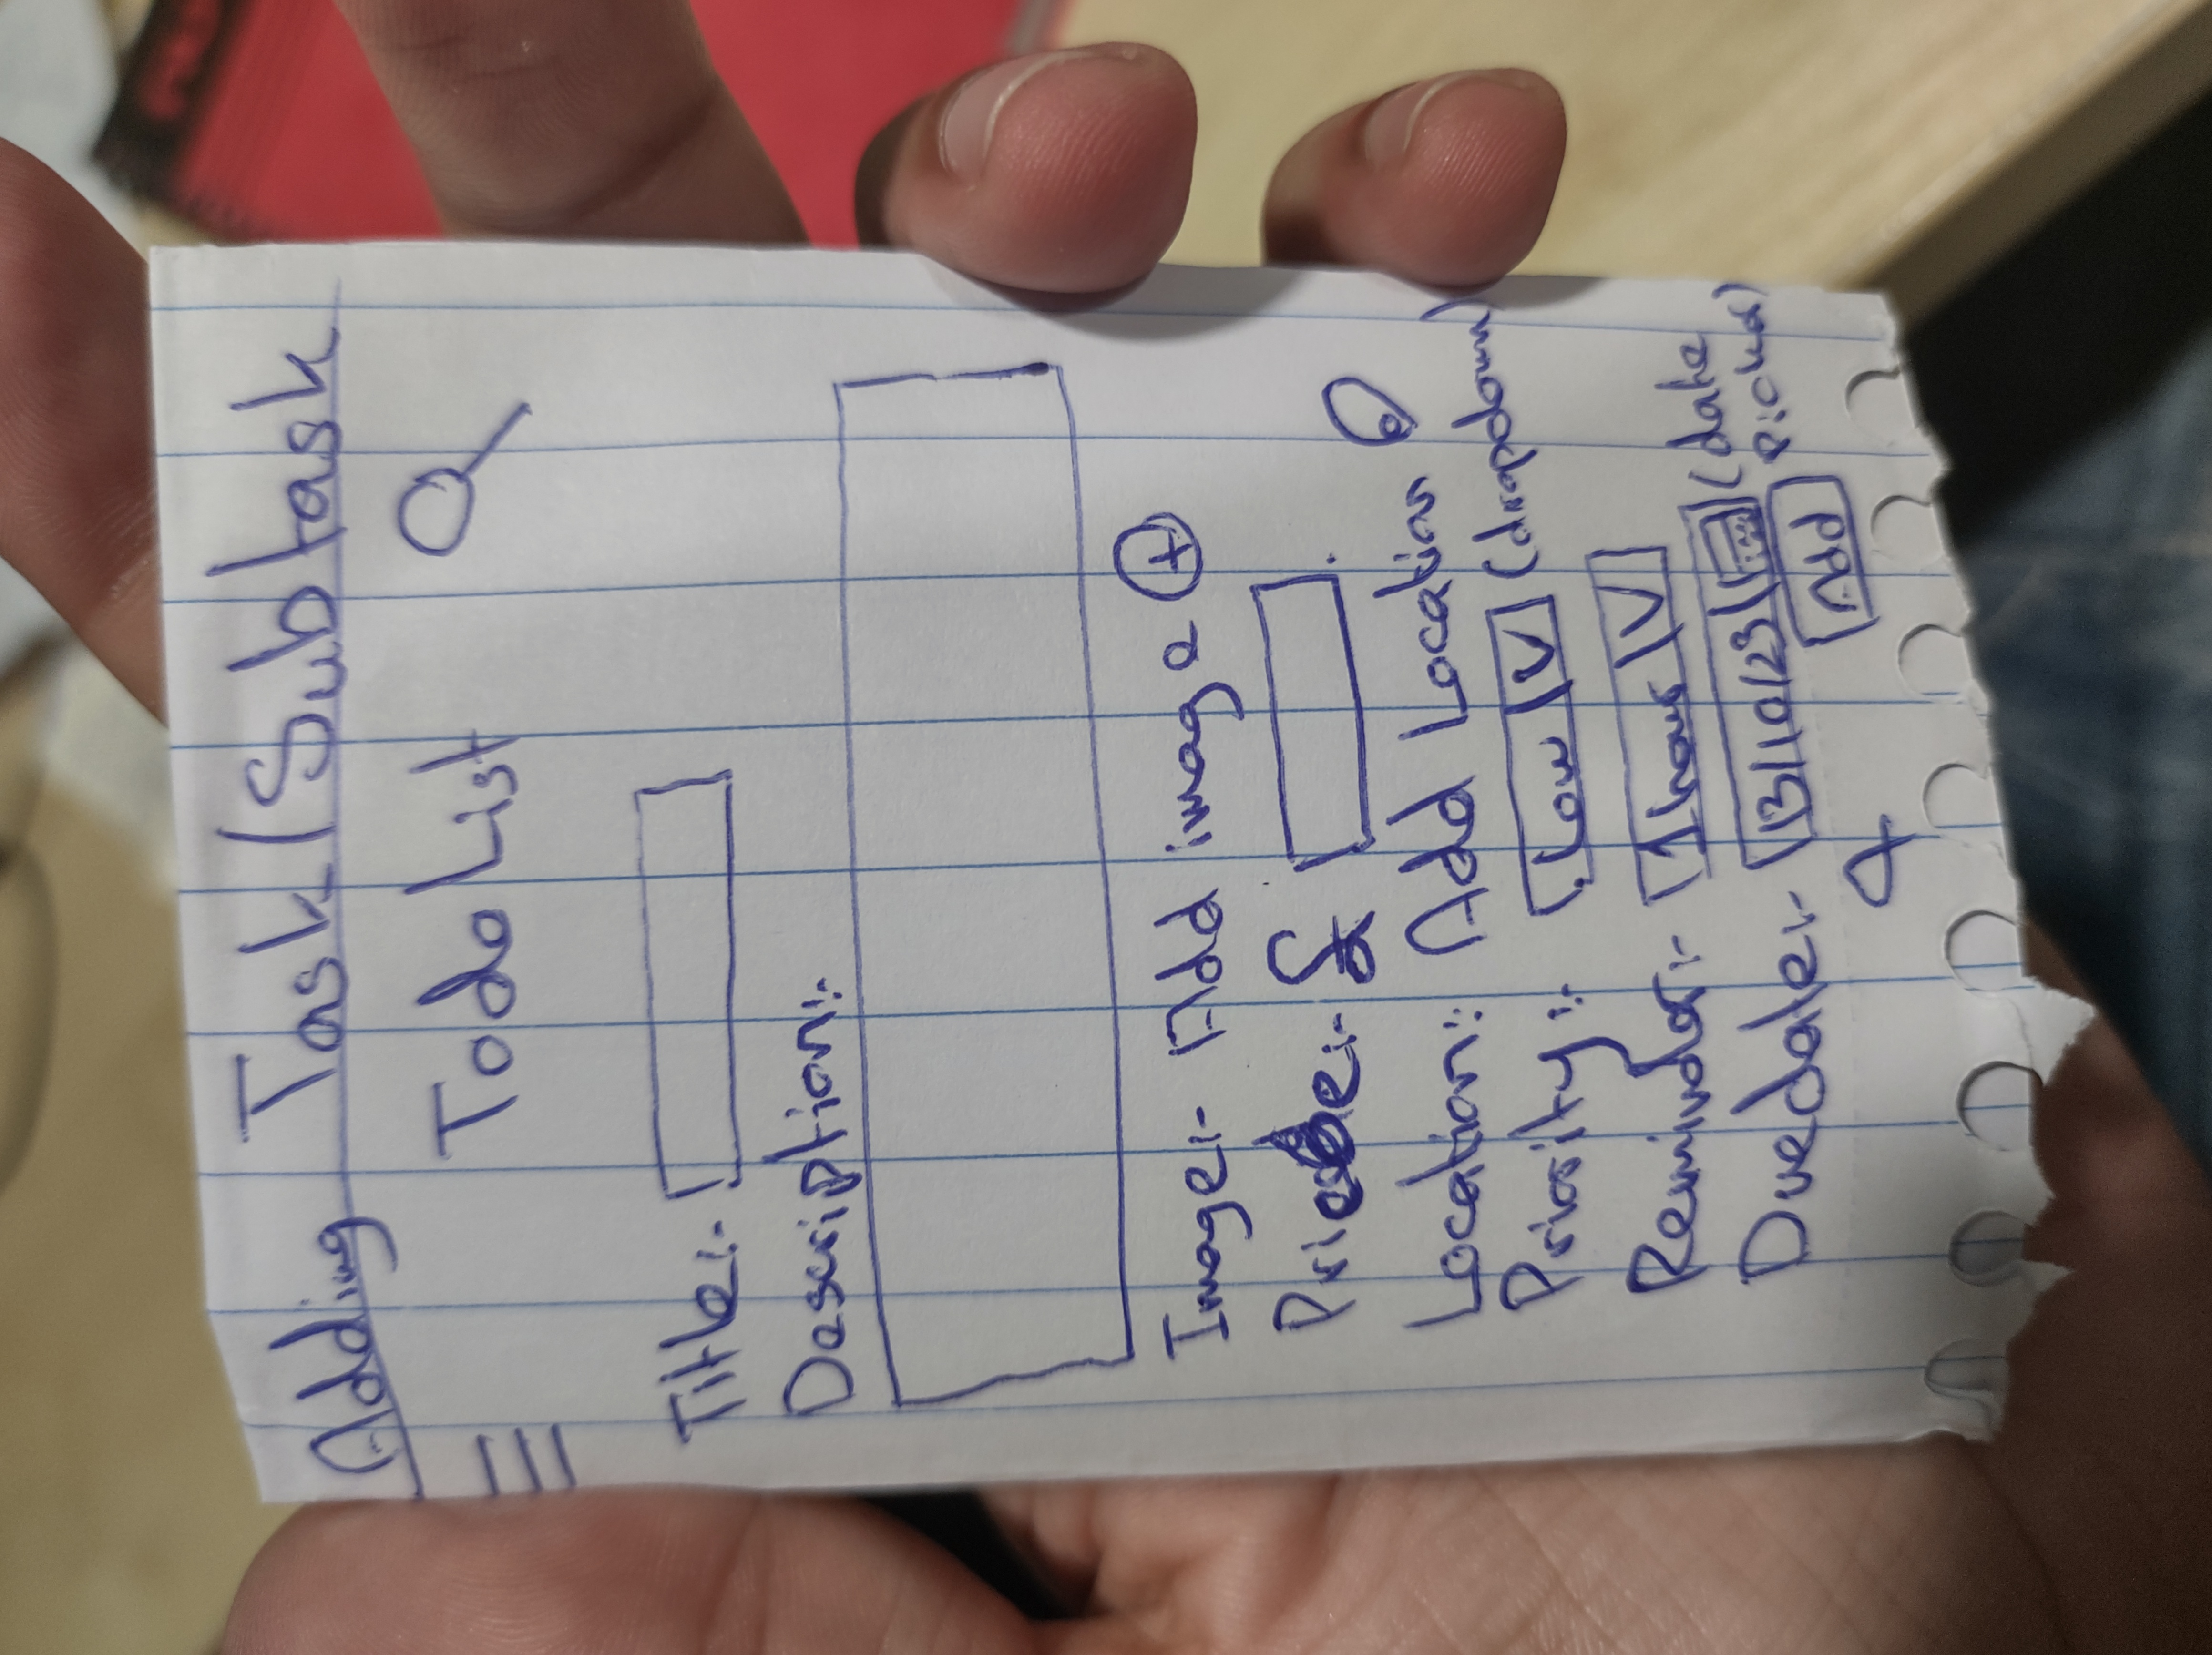 Adding Task/Subtask
Todo List
Title:-
Description:-
Image:- Add image +
Price:- £
Location:- Add Location
Priority:- Low V (dropdown)
Reminder:- 1 hour V
Due date:- 13/10/23 (date picker)
Add
4